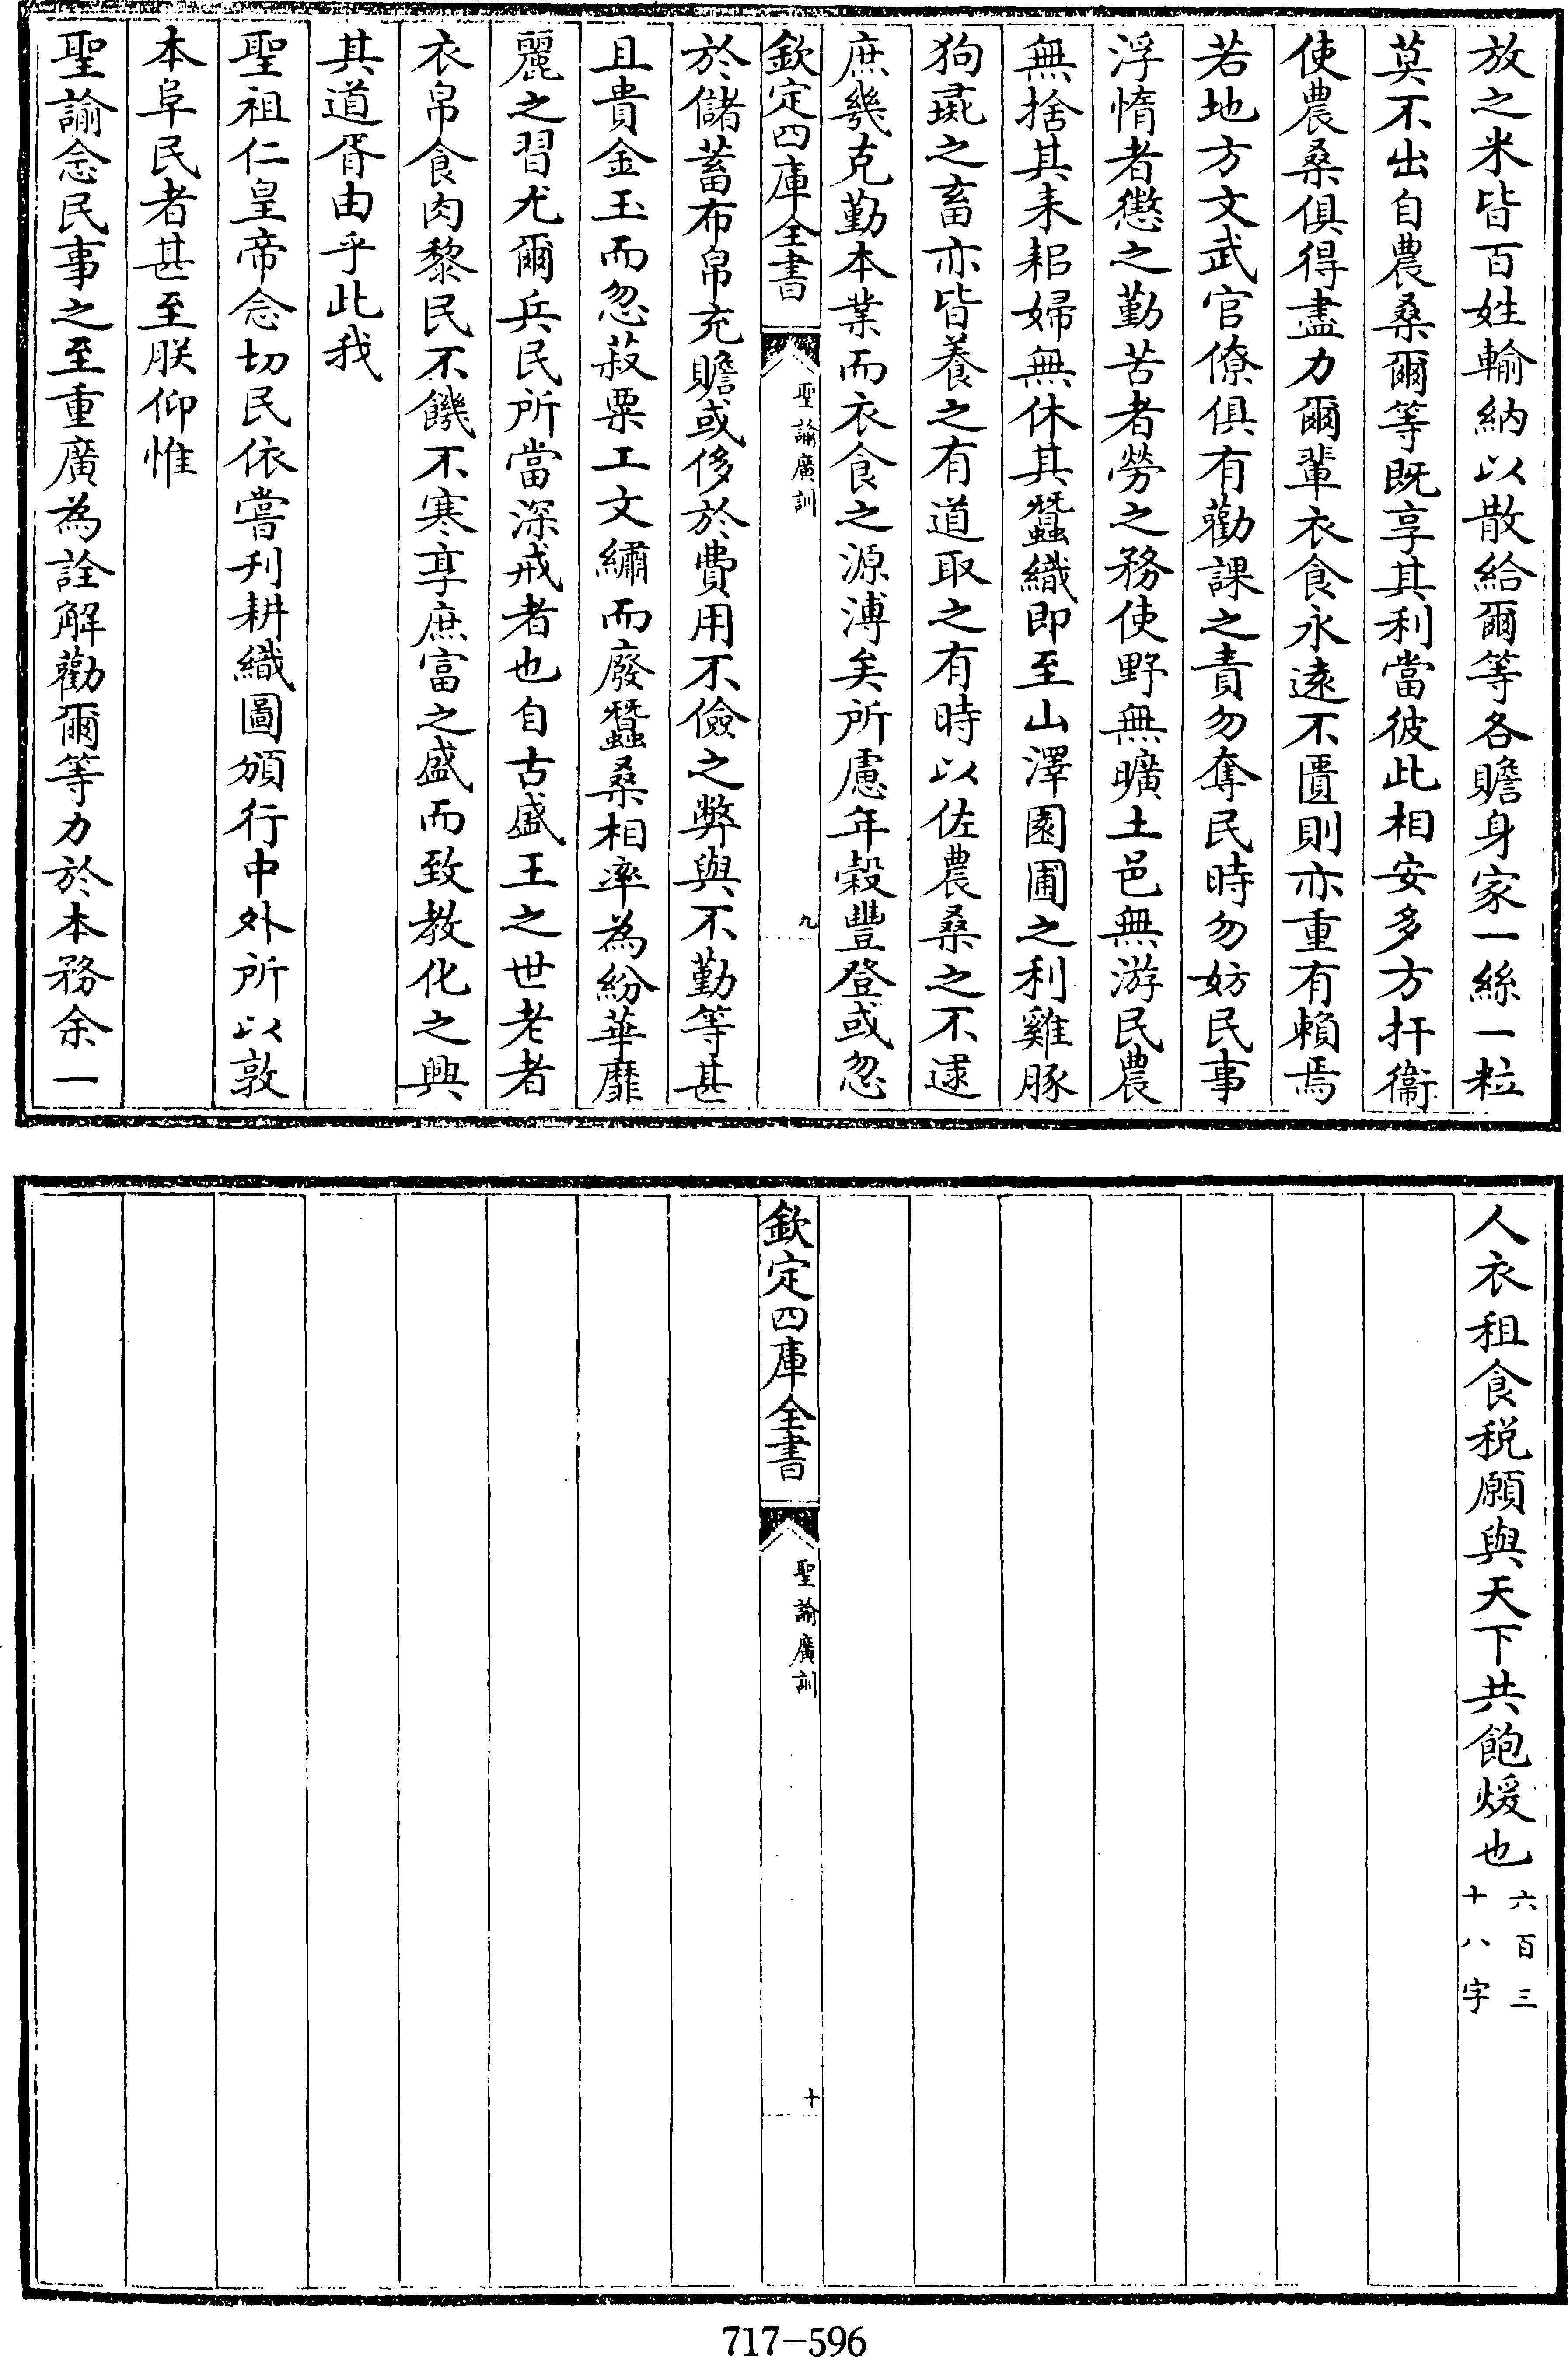 放之米皆百姓輸納以散給爾等各贍身家一絲一粒
莫不出自農桑爾等既享其利當彼此相安多方扞衞
使農桑俱得盡力爾輩衣食永遠不匱則亦重有賴焉
若地方文武官僚俱有勸課之責勿奪民時勿妨民事
浮惰者懲之勤苦者勞之務使野無曠土邑無游民農
無捨其耒耜婦無休其蠶織即至山澤園圃之利雞豚
狗彘之畜亦皆養之有道取之有時以佐農桑之不逮
庶幾克勤本業而衣食之源溥矣所慮年穀豐登或忽
欽定四庫全書
聖諭廣訓
九
於儲蓄布帛充贍或侈於費用不儉之弊與不勤等甚
且貴金玉而忽菽粟工文繡而廢蠶桑相率為紛華靡
麗之習尤爾兵民所當深戒者也自古盛王之世老者
衣帛食肉黎民不饑不寒享庶富之盛而致教化之興
其道胥由乎此我
聖祖仁皇帝念切民依嘗刋耕織圖頒行中外所以敦
本阜民者甚至朕仰惟
聖諭念民事之至重廣為詮解勸爾等力於本務余一
人衣租食税願與天下共飽煖也
六百三
十八字
欽定四庫全書
聖諭廣訓
十
717-596